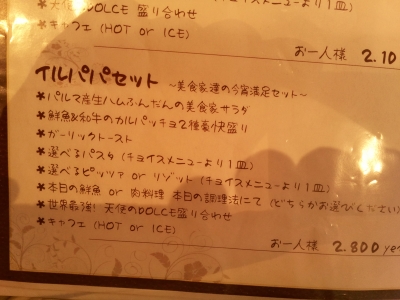 ★天使のDOLCE 盛り合わせ
★キャフェ (HOT or ICE)
お一人様 2.10
イルパパセット ~美食家達の今宵満足セット~
★パルマ産生ハムふんだんの美食家サラダ
★鮮魚&和牛のカルパッチョ2種豪快盛り
★ガーリックトースト
★選べるパスタ (チョイスメニューより1皿)
★選べるピッツァ or リゾット (チョイスメニューより1皿)
★本日の鮮魚 or 肉料理 本日の調理法にて (どちらかお選びください)
★世界最強! 天使のDOLCE盛り合わせ
★キャフェ (HOT or ICE)
お一人様 2.800 yen